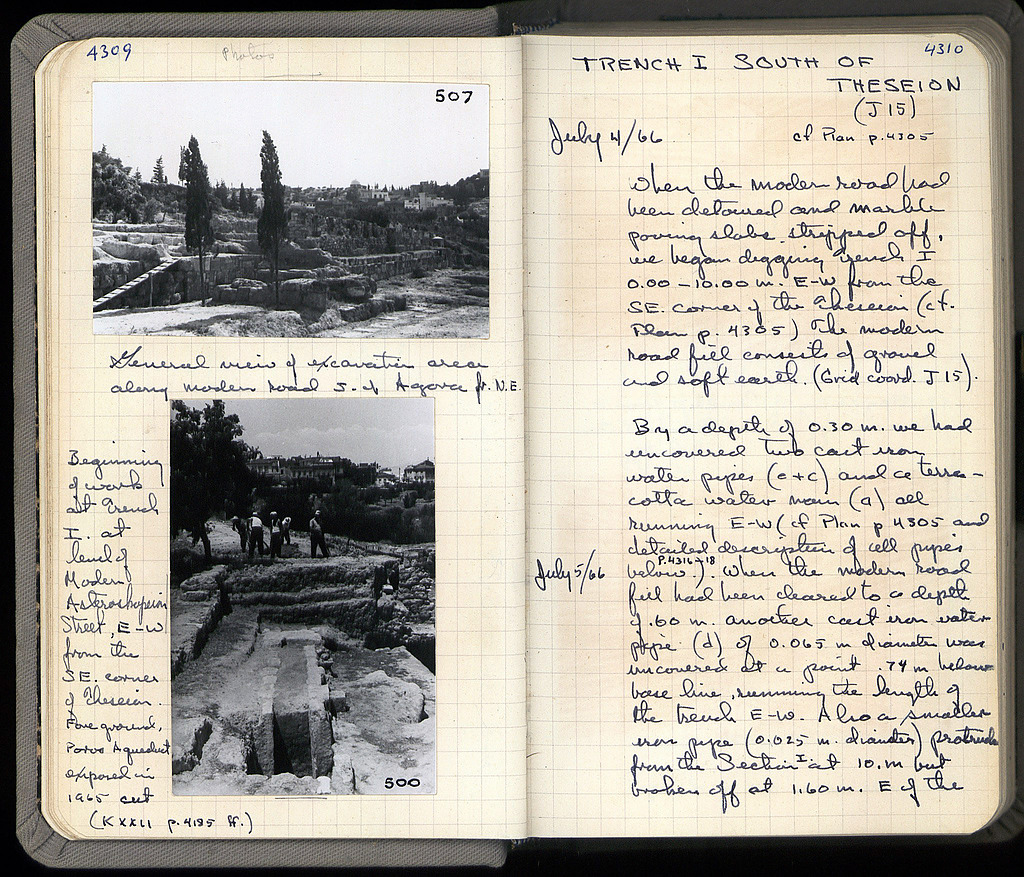 4309
Photos
507
General view of excavation area
along modern road S. of Agora fr. N.E.
Beginning
of work
at Trench
I. at
level of
Modern
Asteroskopeiou
Street, E-W
from the
SE. corner
of Theseion.
Foreground,
Poros Aqueduct
exposed in
1965 cut
(KXXII p. 4195 ff.)
500
4310
TRENCH I SOUTH OF
THESEION
(J 15)
July 4/66
cf Plan p. 4305
When the modern road had
been detoured and marble
paving slabs stripped off,
we began digging Trench I
0.00 - 10.00 m. E-W from the
SE. corner of the Theseion (cf.
Plan p. 4305) The modern
road fill consists of gravel
and soft earth. (Grid coord. J 15).
By a depth of 0.30 m. we had
uncovered two cast iron
water pipes (b+c) and a terra-
cotta water main (a) all
running E-W (cf Plan p 4305 and
detailed description of all pipes
below P. 4316-18). When the modern road
July 5/66
fill had been cleared to a depth
of .60 m. another cast iron water
pipe (d) of 0.065 m diameter was
uncovered at a point .74 m below
base line, running the length of
the trench E-W. Also a smaller
iron pipe (0.025 m. diameter) protrudes
from the Section I at 10. m but
broken off at 1.60 m. E of the